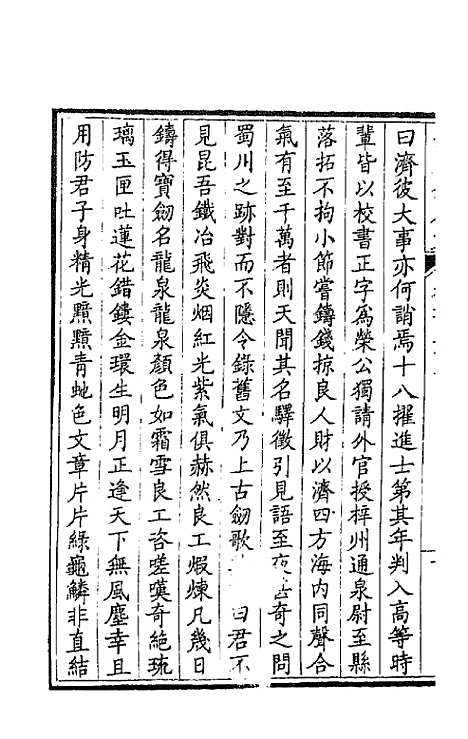 曰濟彼大事亦何誚焉十八擢進士第其年判入高等時
輩皆以校書正字爲榮公獨請外官授梓州通泉尉至縣
落拓不拘小節嘗鑄錢掠良人財以濟四方海内同聲合
氣有至千萬者則天聞其名驛徵引見語至夜奇之問
蜀川之跡對而不隱令錄舊文乃上古劒歌曰君不
見昆吾鐵冶飛炎烟紅光紫氣俱赫然良工煆煉凡幾日
鑄得寶劒名龍泉龍泉顔色如霜雪良工咨嗟嘆奇絕琉
璃玉匣吐蓮花錯鏤金環生明月正逢天下無風塵幸且
用防君子身精光黯黯青虵色文章片片綠龜鱗非直結